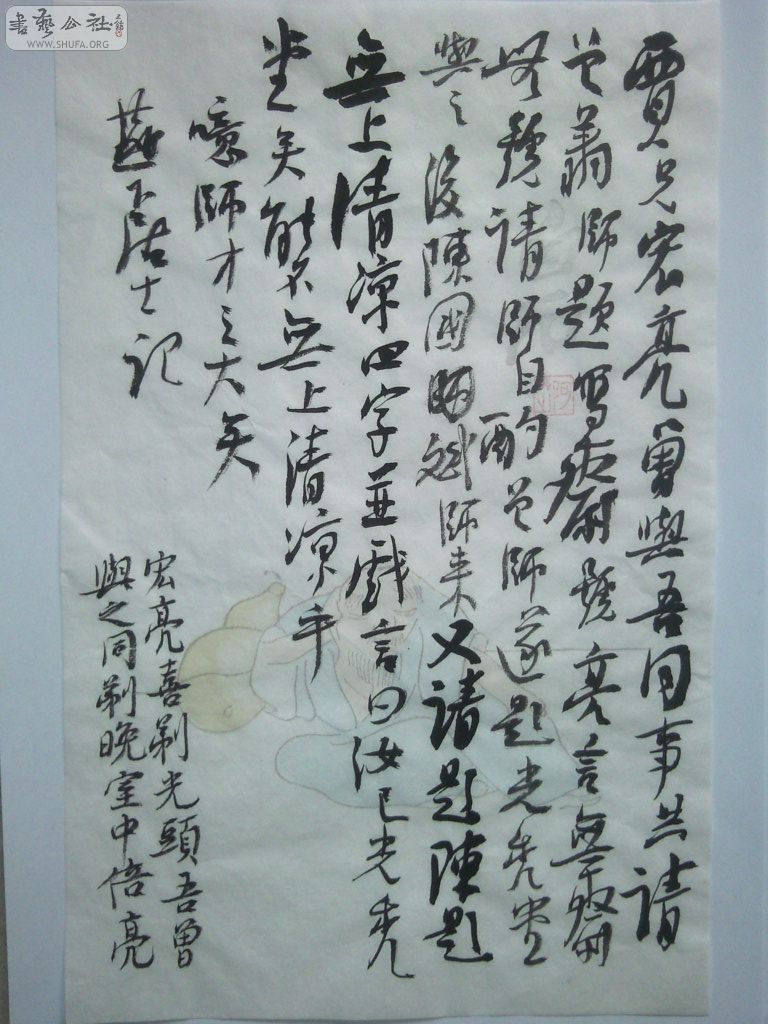 書藝公社
WWW.SHUFA.ORG
賈兄宏亮曾與吾同事共請
曾翁師題寫齋號亮言無齋
號請師自酌曾師遂題光禿堂
與之後陳國昭斌師來又請題陳題
無上清凉四字並戲言曰汝已光禿
堂矣能不無上清凉乎
噫師才之大矣
燕下居士記
宏亮喜剃光頭吾曾
與之同剃晚室中倍亮